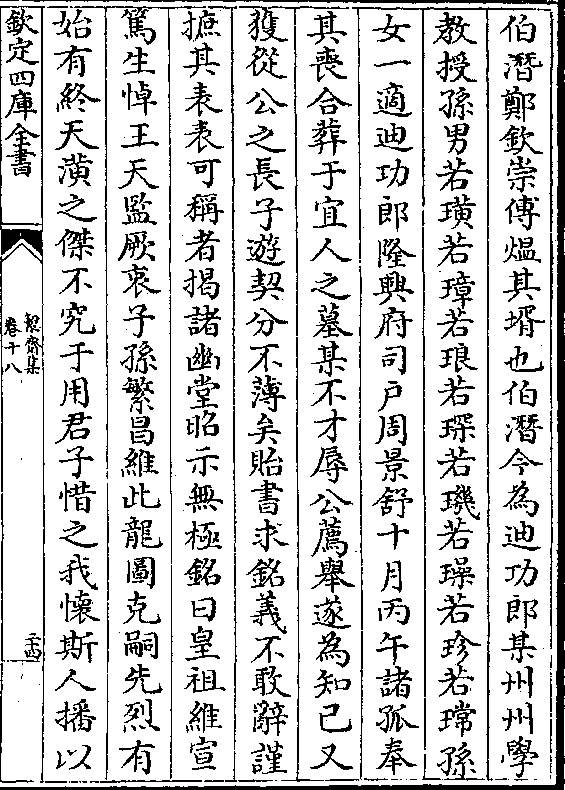 伯潛鄭欽崇傅熅其壻也伯潛今為迪功郎某州州學
教授孫男若璜若璋若琅若琛若璣若璪若珍若瑺孫
女一適迪功郎隆興府司戶周景舒十月丙午諸孤奉
其喪合葬于宜人之墓某不才辱公薦舉遂為知己又
獲從公之長子遊契分不薄矣貽書求銘義不敢辭謹
摭其表表可稱者揭諸幽堂昭示無極銘曰皇祖維宣
篤生悼王天監厥衷子孫繁昌維此龍圖克嗣先烈有
始有終天潢之傑不究于用君子惜之我懷斯人播以
欽定四庫全書
絜齋集
卷十八
二十四